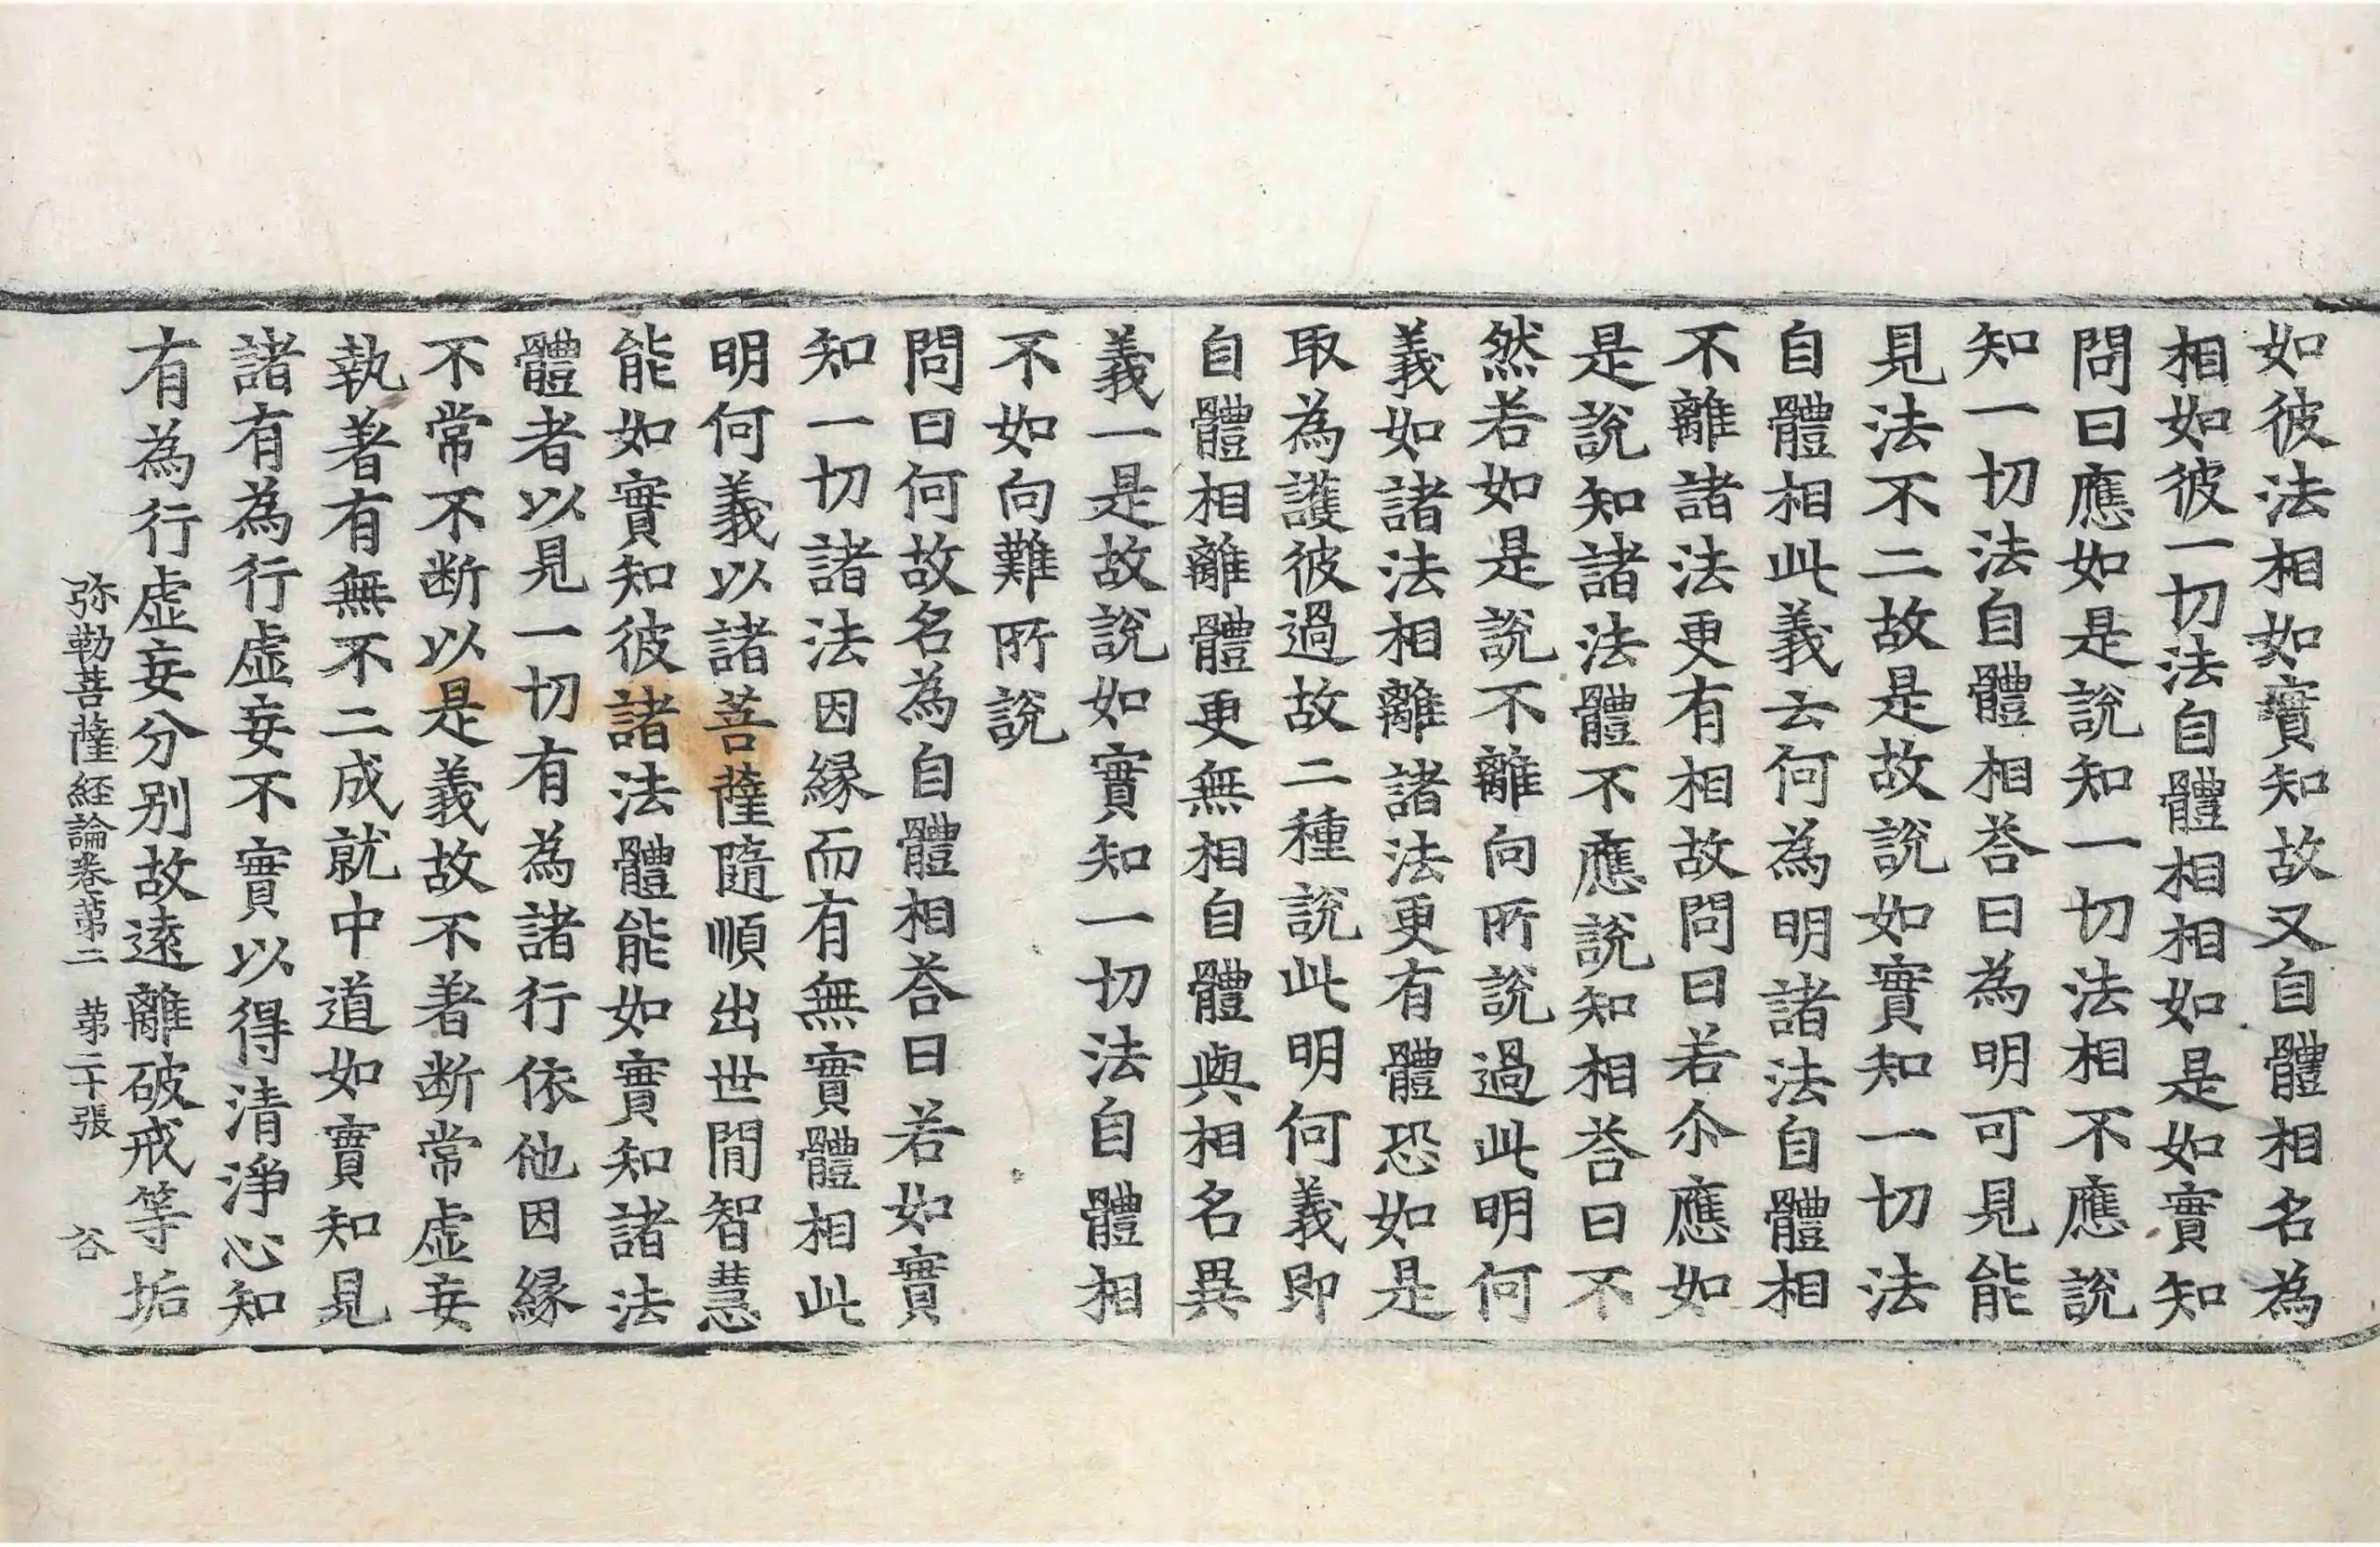 如彼法相如實知故又自體相名為
相如彼一切法自體相相如是如實知
問曰應如是說知一切法相不應說
知一切法自體相荅曰為明可見能
見法不二故是故說如實知一切法
自體相此義云何為明諸法自體相
不離諸法更有相故問曰若尒應如
是說知諸法體不應說知相荅曰不
然若如是說不離向所說過此明何
義如諸法相離諸法更有體恐如是
取為護彼過故二種說此明何義即
自體相離體更無相自體與相名異
義一是故說如實知一切法自體相
不如向難所說
問曰何故名為自體相荅曰若如實
知一切諸法因緣而有無實體相此
明何義以諸菩薩隨順出世間智慧
能如實知彼諸法體能如實知諸法
體者以見一切有為諸行依他因緣
不常不断以是義故不著断常虛妄
執著有無不二成就中道如實知見
諸有為行虛妄不實以得清淨心知
有為行虛妄分別故遠離破戒等垢
弥勒菩薩経論卷苐二 苐二十張 谷